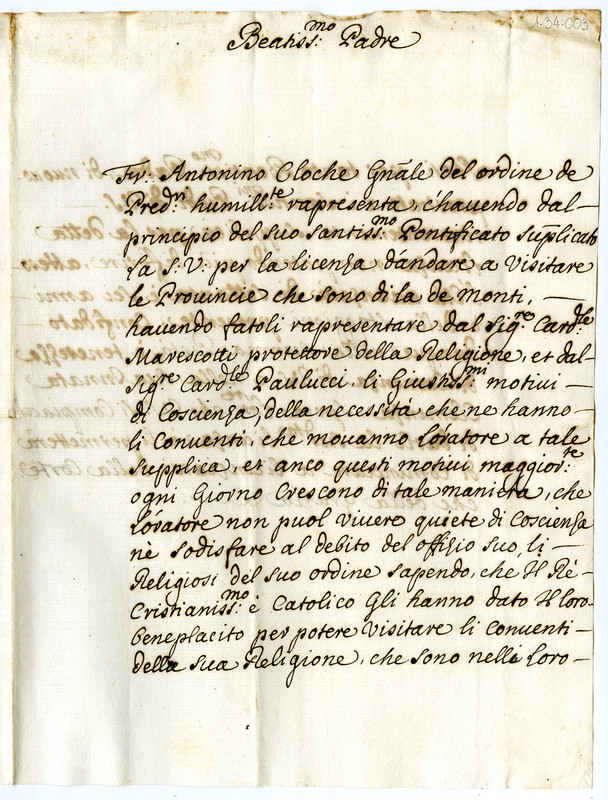 1-34-003
Beatiss:mo Padre
Fr: Antonino Cloche Gnãle del ordine de
Pred:ri humill:te rapresenta, c'havendo dal—
principio del suo Santiss:mo Pontificato supplicato
la S: V: per la licenza d'andare a Visitare
le Provincie che sono di la de monti, —
havendo fatoli rapresentare dal Sig:re Card:le
Marescotti protettore della Religione, et dal—
Sig:re Card:le Paulucci, li Giustiss:mi motivi —
di Coscienza, della necessità che ne hanno—
li Conventi, che movanno l'oratore a tale
supplica, et anco questi motivi maggior:te
ogni Giorno Crescono di tale maniera, che
l'oratore non puol vivere quiete di Coscienza
nè sodisfare al debito del offizio suo, li —
Religiosi del suo ordine sapendo, che Il Rè—
Cristianiss:mo è Catolico Gli hanno dato Il loro
beneplacito per potere Visitare li Conventi—
della sua Religione, che sono nelli loro—